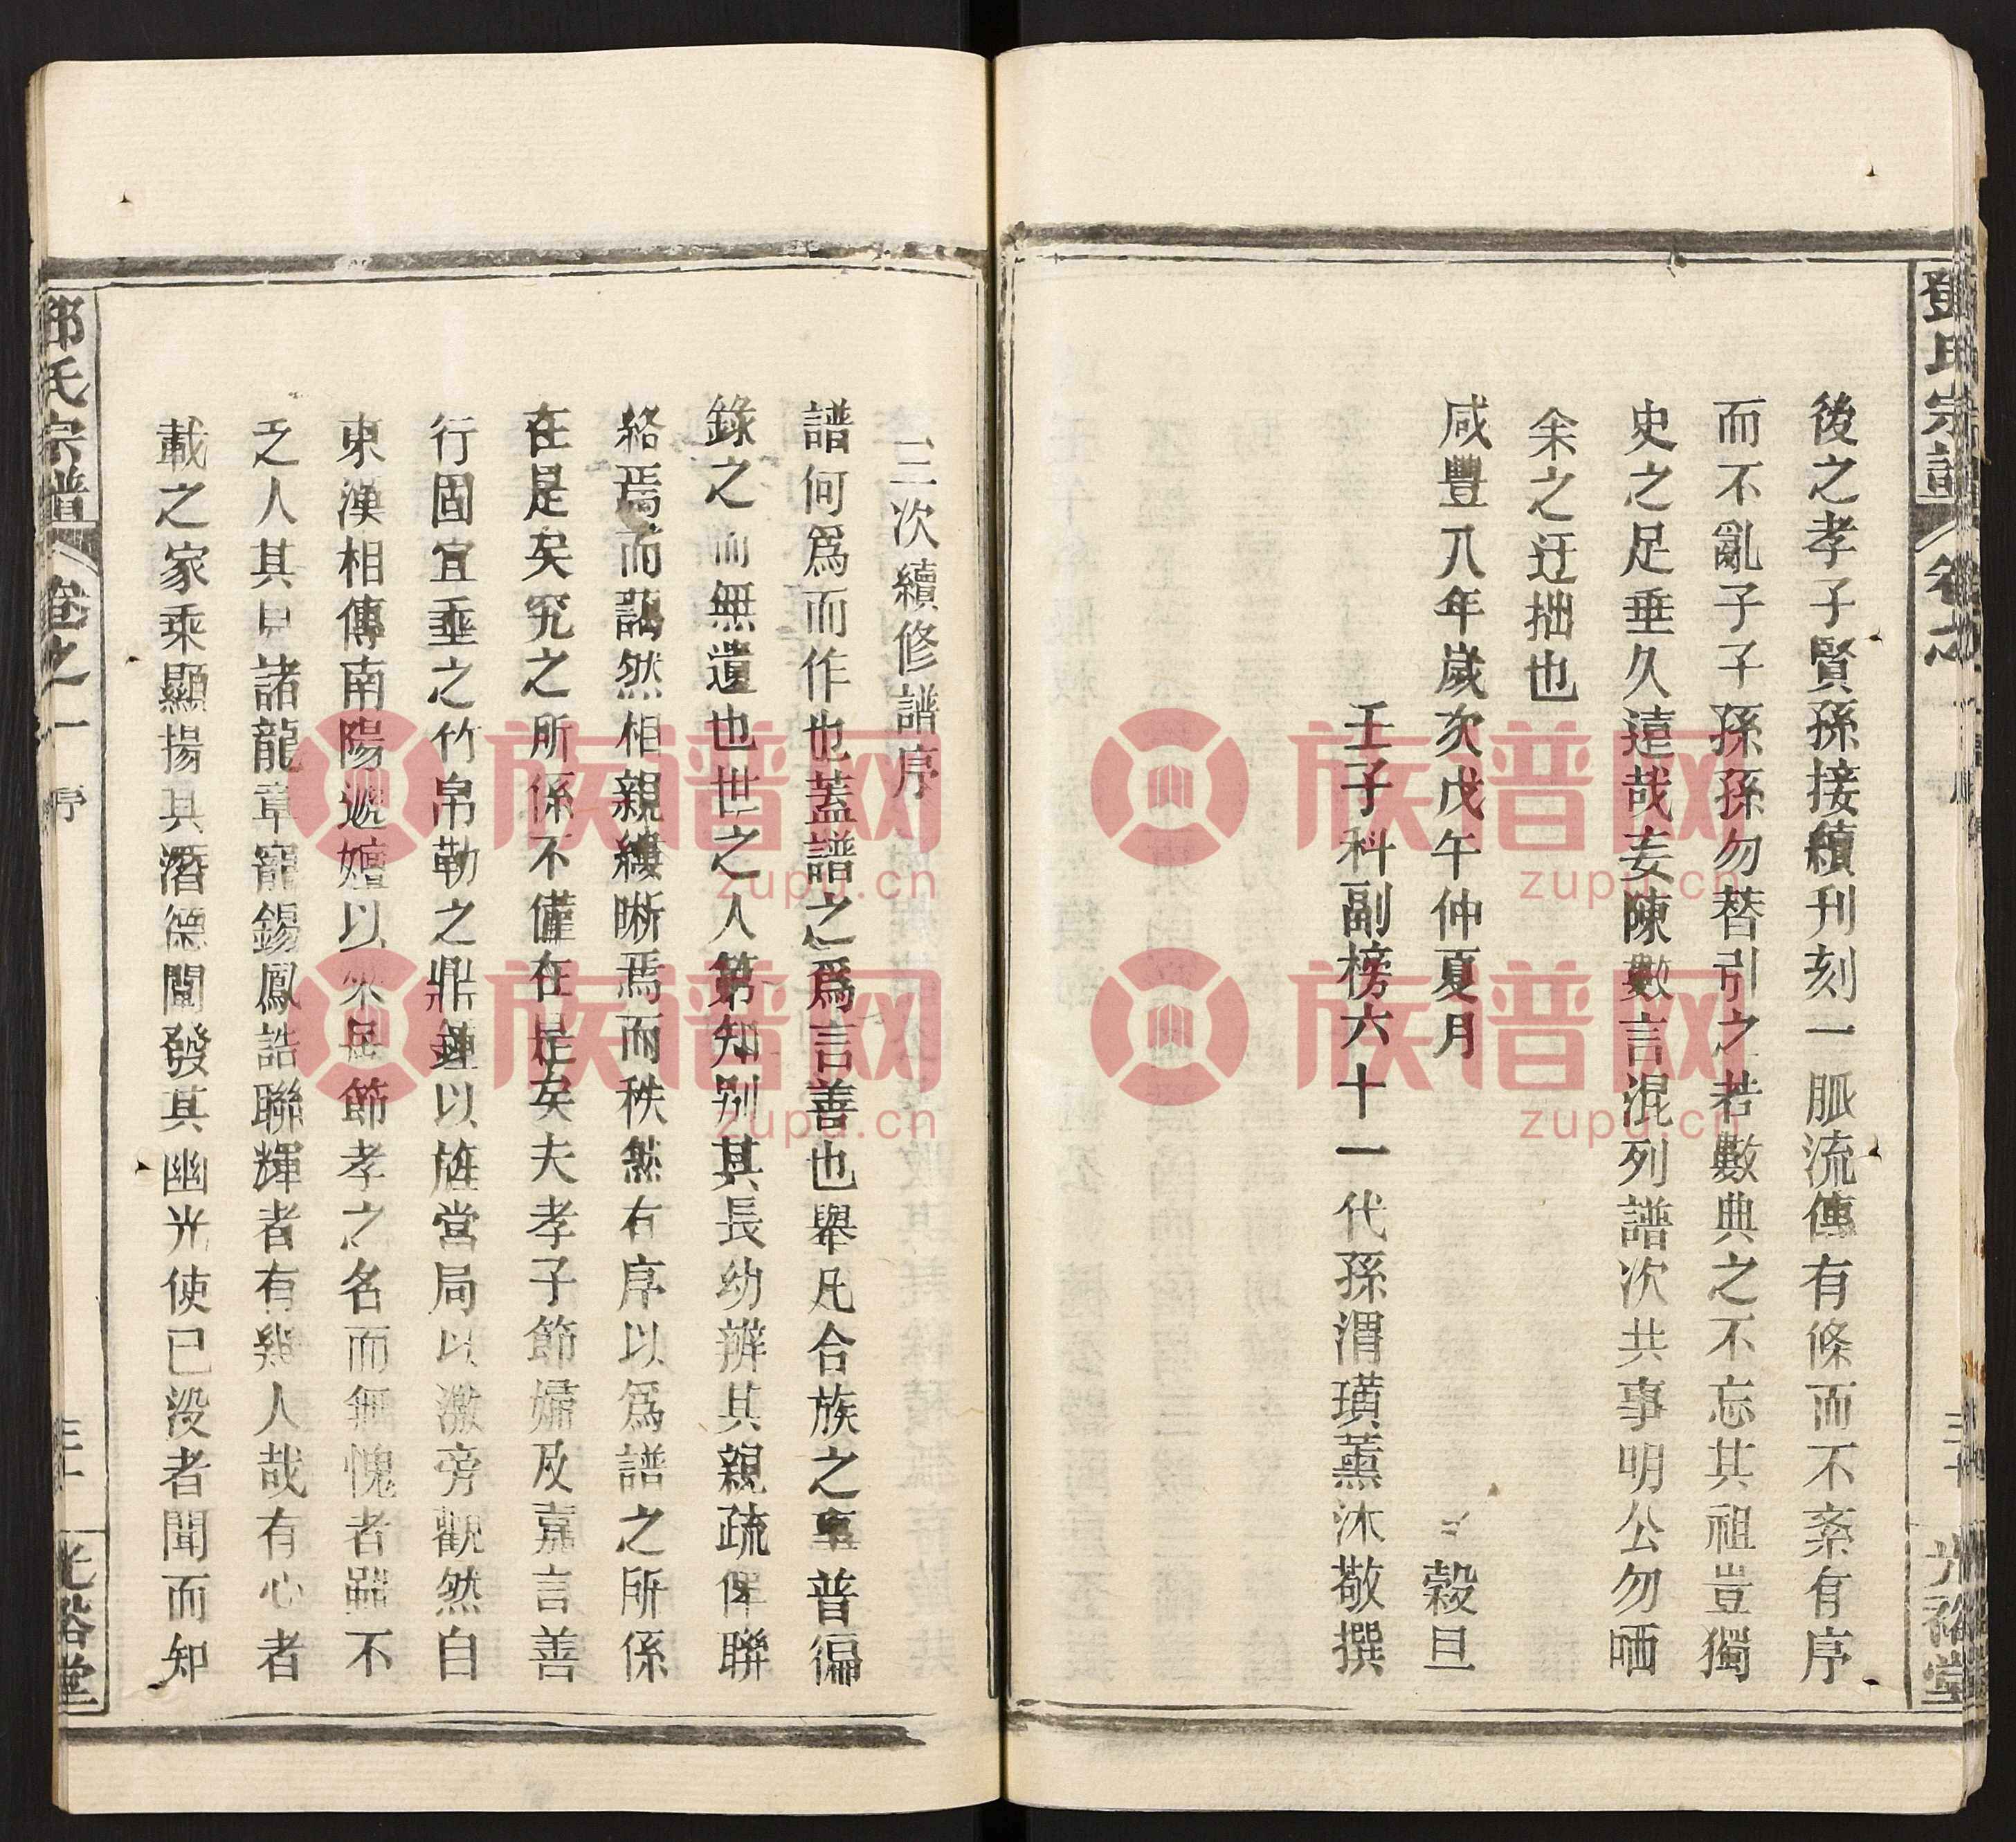 鄧氏宗譜
卷之一
序
三十
光裕堂
後之孝子賢孫接續刊刻一脈流傳有條而不紊有序
而不亂子子孫孫勿替引之若數典之不忘其祖豈獨
史之足垂久遠哉妄陳數言混列譜次共事明公勿哂
余之迂拙也
咸豐八年歲次戊午仲夏月 穀旦
壬子科副榜六十一代孫渭璜薰沐敬撰
三次續修譜序
譜何爲而作也蓋譜之爲言善也舉凡合族之事普徧
錄之而無遺也世之人第知別其長幼辨其親疏俾聯
絡焉而藹然相親縷晰焉而秩然有序以爲譜之所係
在是矣究之所係不僅在是矣夫孝子節婦及嘉言善
行固宜垂之竹帛勒之鼎鍾以旌當局以激旁觀然自
東漢相傳南陽遞嬗以來足節孝之名而無愧者雖不
乏人其見諸龍章寵錫鳳誥聯輝者有幾人哉有心者
載之家乘顯揚其潛德闡發其幽光使已没者聞而知
鄧氏宗譜
卷之一
序
三十一
光裕堂
族譜网
zupu.cn
族譜网
zupu.cn
族譜网
zupu.cn
族譜网
zupu.cn